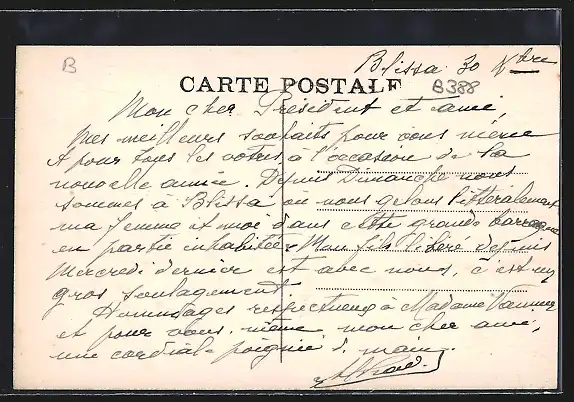 B
Blissa 30 Xbre
CARTE POSTALE
B388
Mon cher Président et ami,
Mes meilleurs souhaits pour vous même
et pour tous les votres, à l'occasion de la
nouvelle année. Depuis Dimanche nous
sommes à Blissa où nous gelons littéralement
ma femme et moi dans cette grande barraque
en partie inhabitée. Mon fils libéré depuis
Mercredi dernier est avec nous, c'est un
gros soulagement.
Hommages respectueux à Madame
et pour vous-même mon cher ami,
une cordiale poignée d. main.